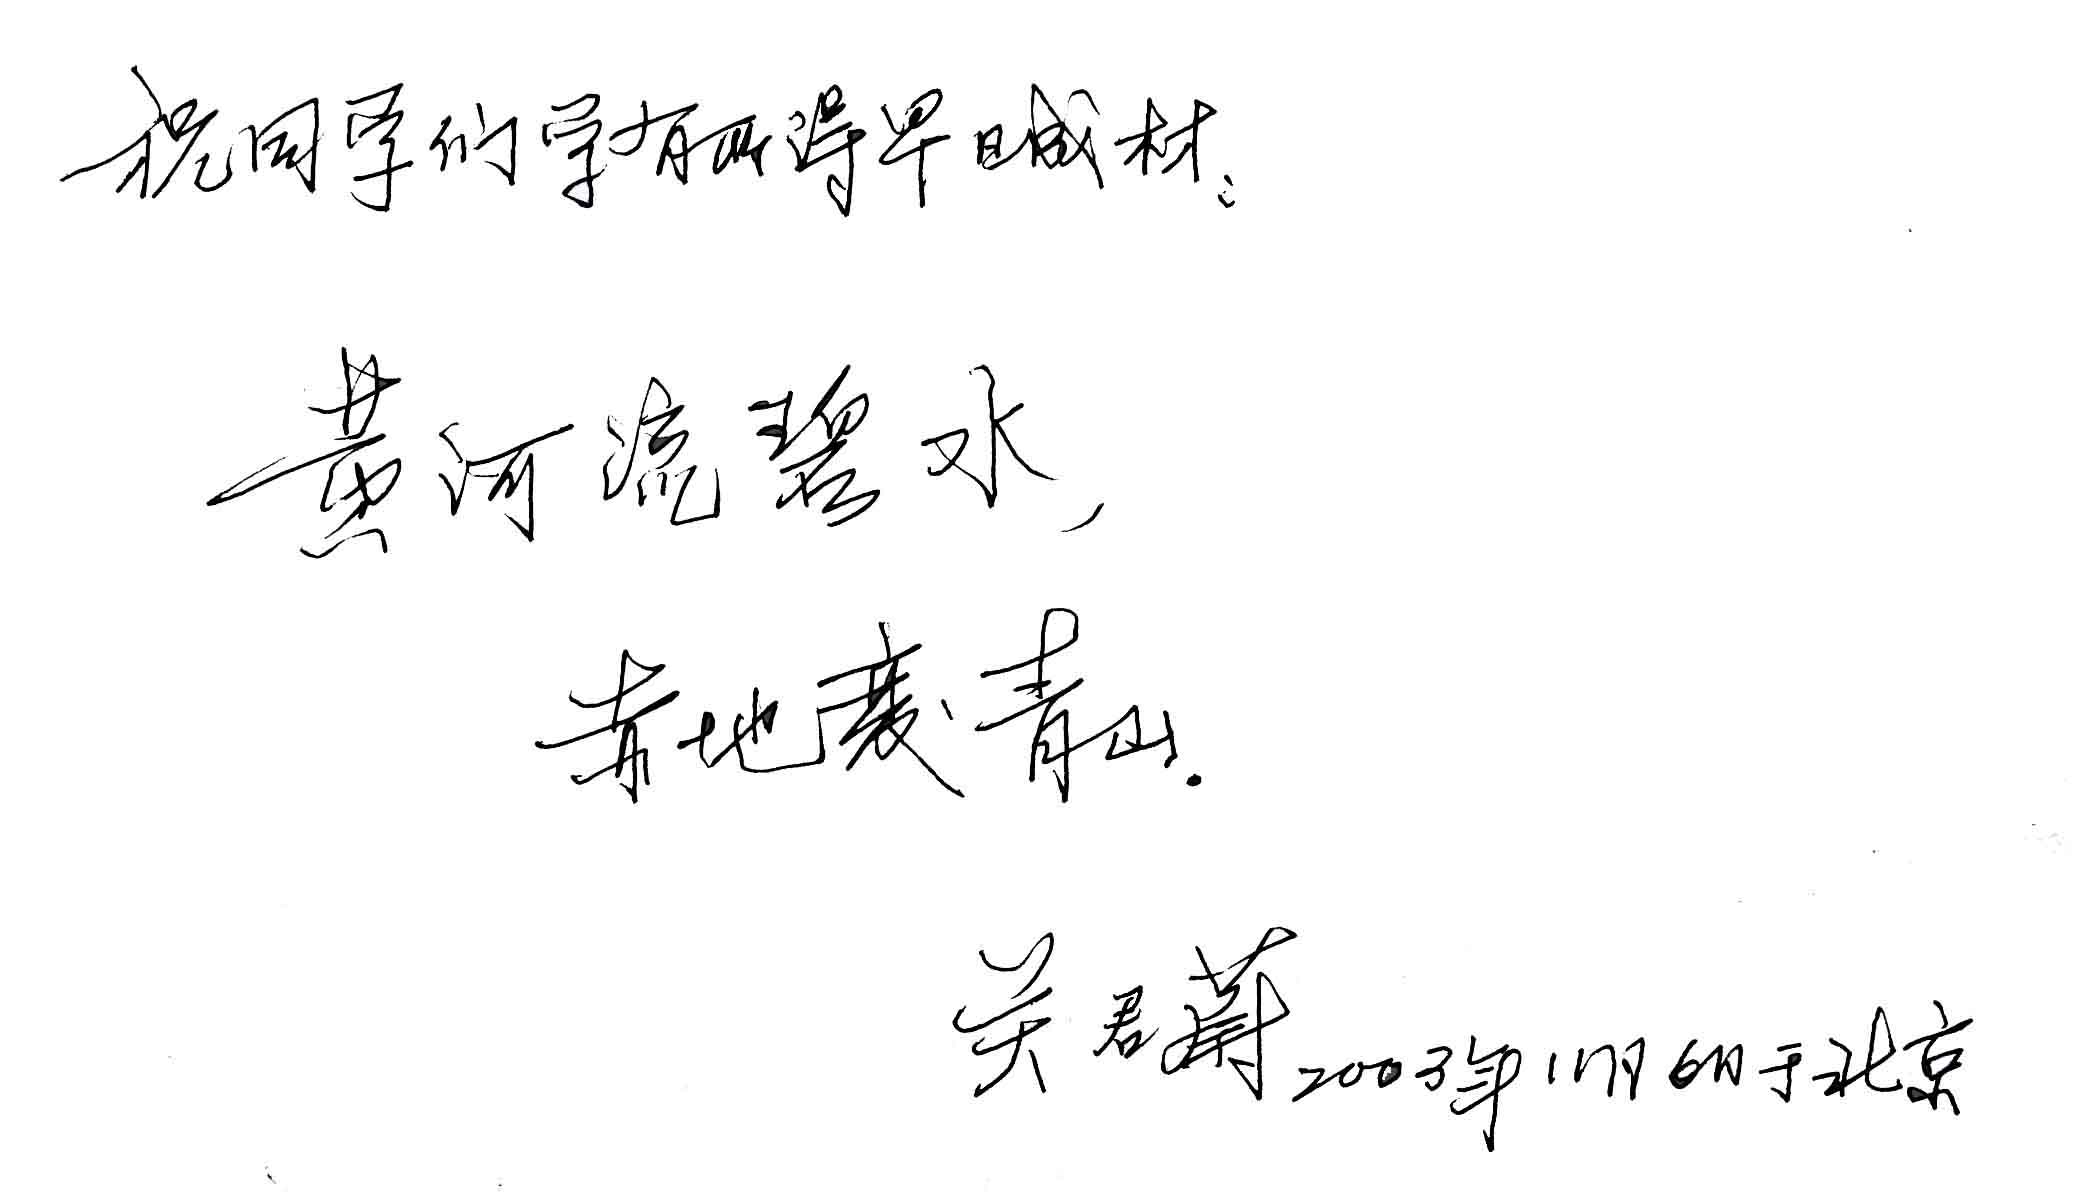 祝同学们学有所得早日成材:
黄河流碧水,
赤地变青山.
关君蔚 2003年11月6日于北京